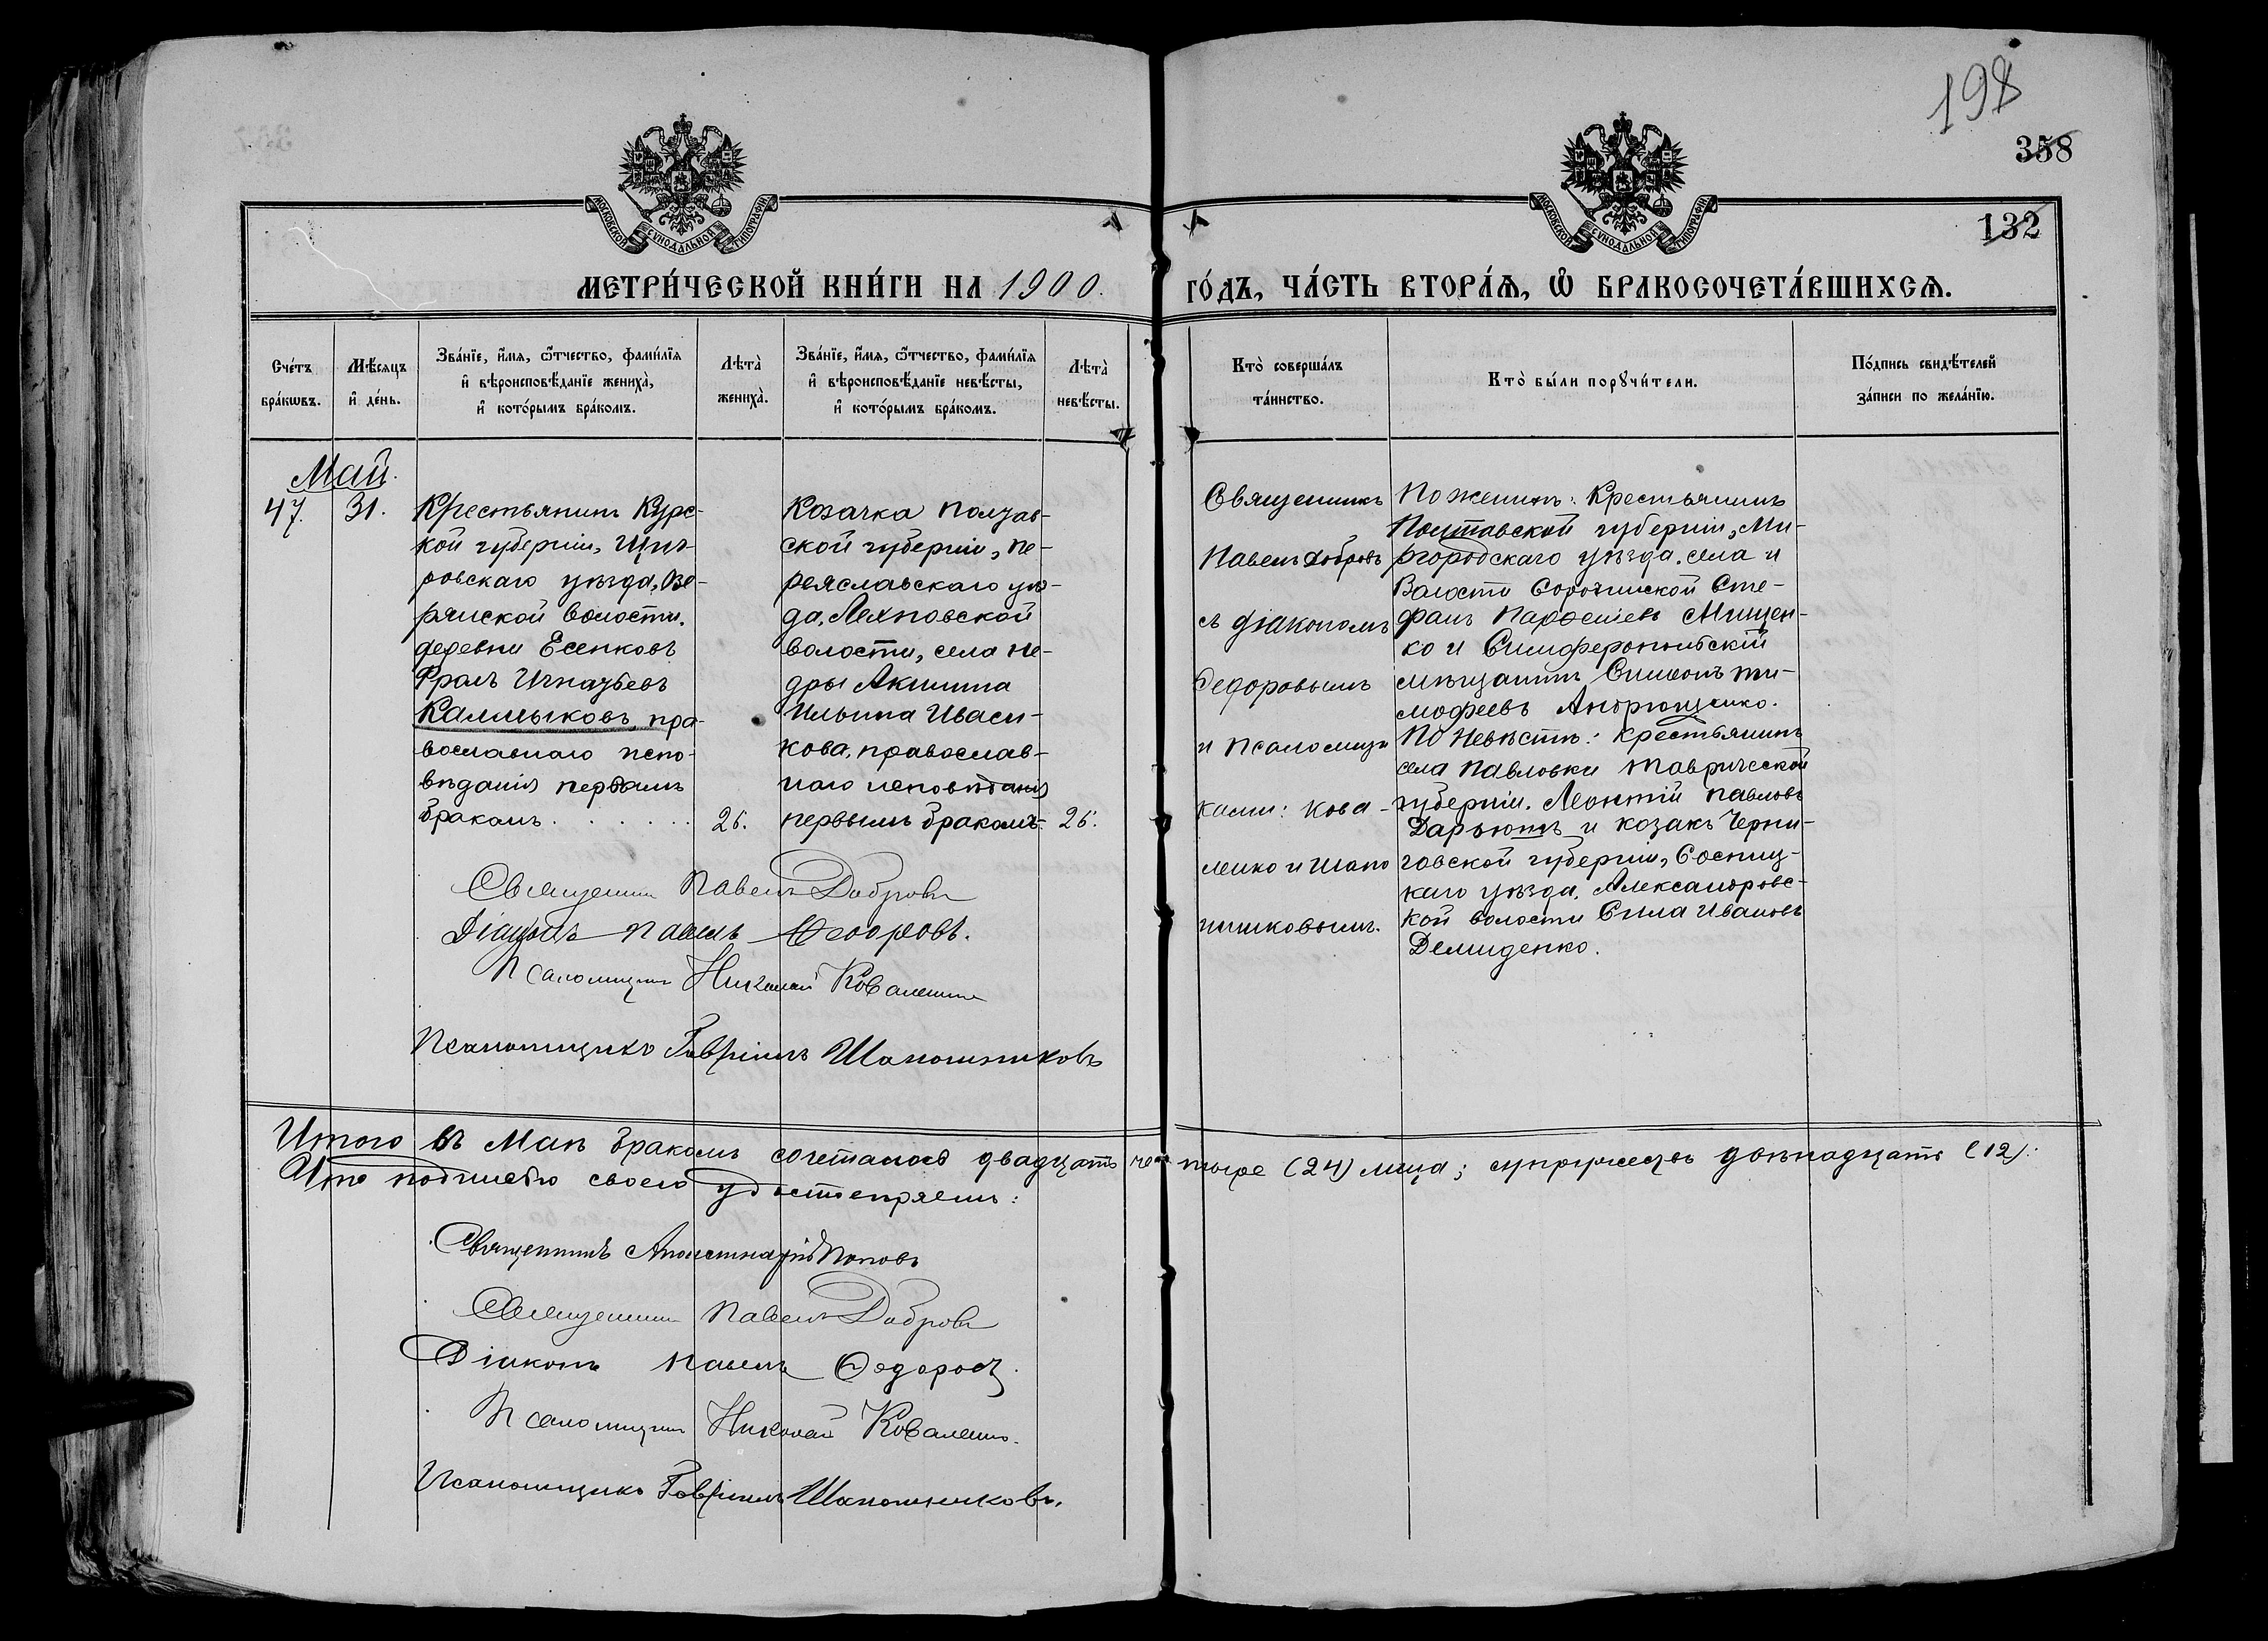 198
358
132
МОСКОВСКОЙ СУНОДАЛЬНОЙ ТИПОГРАФІИ
МОСКОВСКОЙ СУНОДАЛЬНОЙ ТИПОГРАФІИ
МЕТРИ́ЧЕСКОЙ КНИ́ГИ НА 1900.
ГО́ДЪ, ЧА́СТЬ ВТОРА́Ѧ, Ѽ БРАКОСОЧЕТА́ВШИХСѦ.
Сче́тъ бра́кѡвъ.
Мѣ́сяцъ и҆ де́нь.
Зва́нїе, и҆́мя, ѻ҆́тчество, фами́лїя
и҆ вѣроисповѣ́данїе жениха̀,
и҆ кото́рымъ бра́комъ.
Лѣта̀ жениха̀.
Зва́нїе, и҆́мя, ѻ҆́тчество, фами́лїя
и҆ вѣроисповѣ́данїе невѣ́сты,
и҆ кото́рымъ бра́комъ.
Лѣта̀ невѣ́сты.
Кто̀ соверша́лъ
та́инство.
Кто̀ бы́ли порꙋчи́тели.
По́дпись свидѣ́телей
за́писи по жела́нїю.
Май.
47.
31.
Крестьянинъ Курс-
кой губерніи, Щиг-
ровскаго уѣзда,
волости.
деревни Есенковъ
Фролъ Игнатьевъ
Калмыковъ, пра-
вославнаго испо-
вѣданія первымъ
бракомъ . . . . . .
26.
Козачка Полтав-
ской губерніи, Пе-
реяславскаго уѣз-
да, Лехновской
волости, села Не-
дры Акилина
Ильина Иваси-
кова, православ-
наго исповѣданія
первымъ бракомъ.
26.
Священникъ
Павелъ Добровъ
съ діакономъ
Ѳедоровымъ
и псаломщи
ками: Кова-
ленко и Шапо
шниковымъ.
По женихѣ: Крестьянинъ
Полтавской губерніи, Ми-
ргородскаго уѣзда, села и
Волости Сорочинской Сте-
фанъ Парѳеніевъ Мищен-
ко и Симферопольскій
мѣщанинъ Симеонъ Ти-
мофеевъ Андрющенко.
По Невѣстѣ: Крестьянинъ
села Павловки Таврической
губерніи. Леонтій Павловъ
и козакъ Черни-
говской губерніи, Сосниц-
каго уѣзда, Александровс-
кой волости Сила Ивановъ
Демиденко.
Священникъ Павелъ Добровъ
Діаконъ Павелъ Ѳеодоровъ.
Псаломщикъ Николай Коваленко
Псаломщикъ Гавріилъ Шапошниковъ
Итого въ Маѣ бракомъ сочеталось двадцать четыре (24) лица; супружествъ двѣнадцать (12).
Что подписью своею удостовѣряемъ:
Священникъ Аполлинарій Поповъ
Священникъ Павелъ Добровъ
Діаконъ Павелъ Ѳедоровъ.
Псаломщикъ Николай Коваленко.
Псаломщикъ Гавріилъ Шапошниковъ.